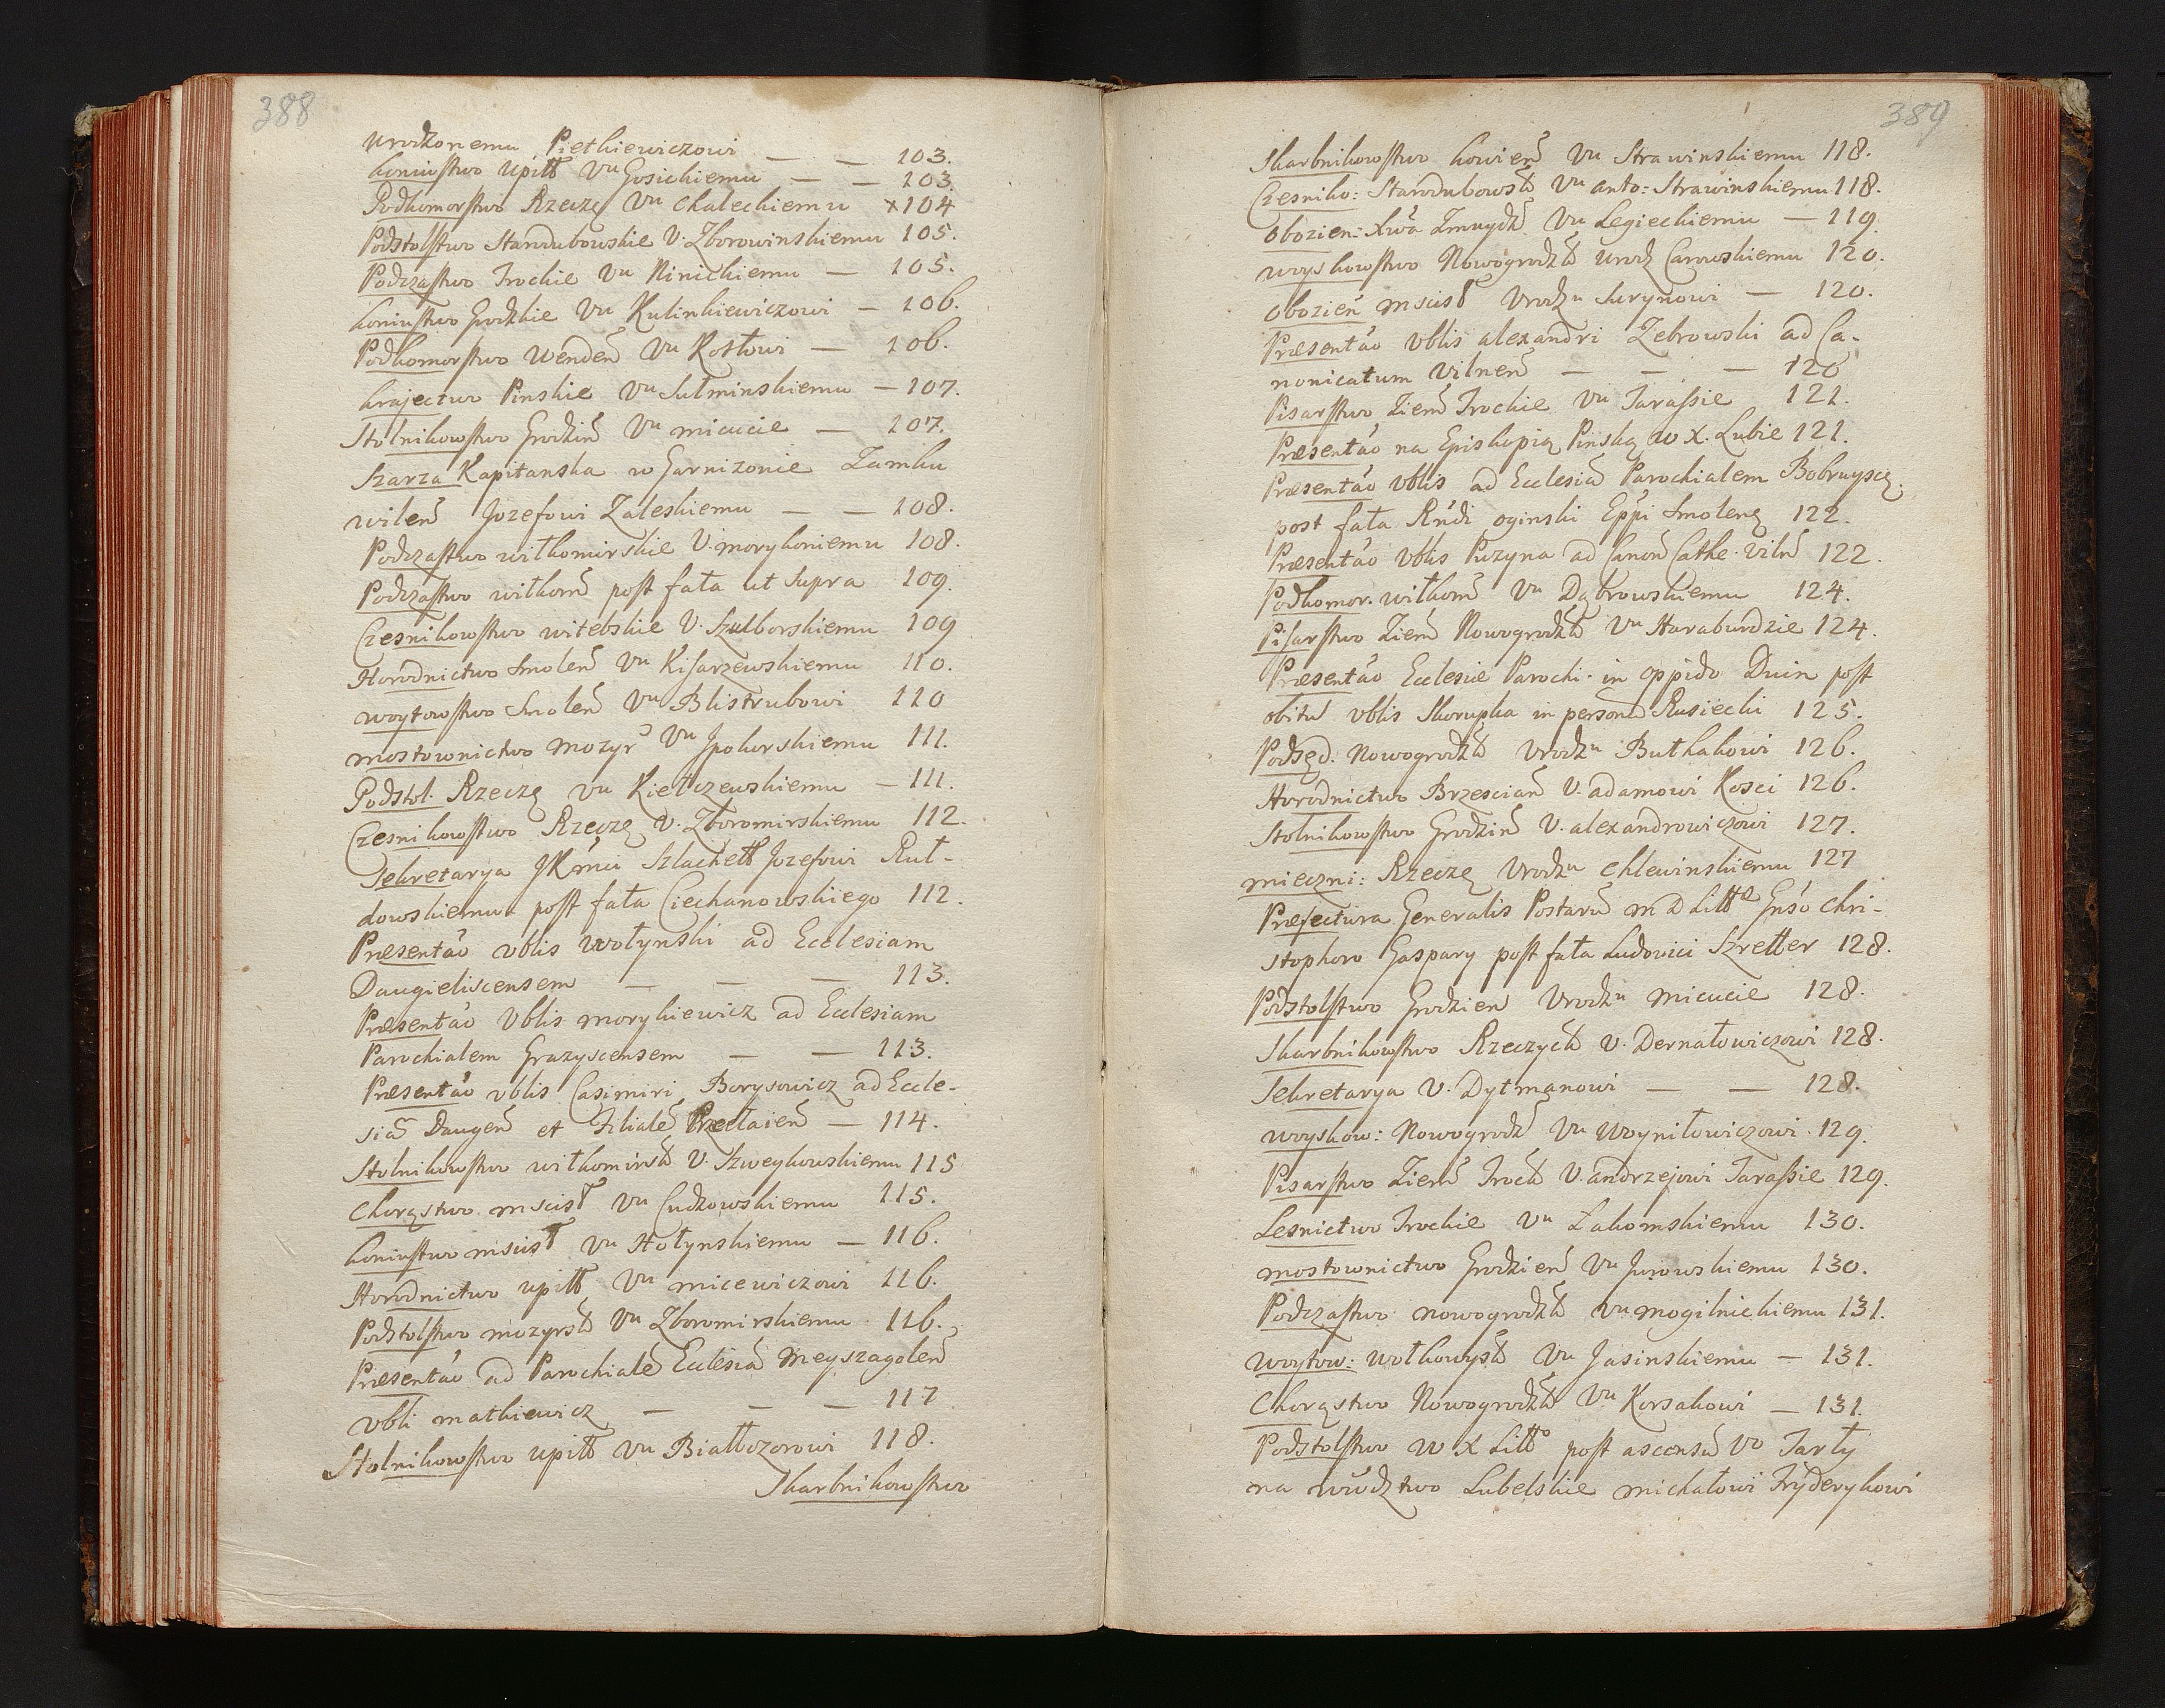 388
urodzonemu Piethiewiczowi — — 103.
koniustwo Upitt Vu Gosickiemu — — 103.
Podkomorstwo Rzeczę Vu Chaleckiemu x104
Podstolstwo Starodubowskie V. Zborowinskiemu 105.
Podczastwo Trockie Vu Ninickiemu — 105.
koniustwo Grodzkie Vu Kulinkiewiczowi — 106.
Podkomorstwo Wendeń Vu Kosłowi — 106.
krajectwo Pinskie Vu Sulminskiemu — 107.
Stolnikowstwo Grodzień Vu micucie — 107.
Szarza Kapitanska w Garnizonie Zamku
wileń Jozefowi Zaleskiemu — — 108.
Podczastwo wiłkomirskie V. morykoniemu 108.
Podczastwo wiłkom̃ post fata ut Supra 109.
Czesnikowstwo witebskie V. Szulborskiemu 109
Horodnictwo Smoleń Vu Kisarzewskiemu 110.
woytowstwo Smoleń Vu Blistrubowi 110
mostownictwo mozyr Vu Jpohorskiemu 111.
Podstol. Rzeczę Vu Kiełczewskiemu — 111.
Czesnikowstwo Rzeczę V. Zboromirskiemu 112.
Sekretarya JKmci Szlachett Jozefowi Rut-
dowskiemu post fata Ciechanowskiego 112.
Præsentão vblis wołynski ad Ecclesiam
Daugieliscensem — — — 113.
Præsentão Vblis morykiewicz ad Ecclesiam
Parochialem Grazyscensem — — 113.
Præsentão vblis Casimiri Borysowicz ad Eccle-
siã Daugeñ et Filialẽ Przełaień — 114.
Stolnikowstwo wiłkomirsk V. Szweykowskiemu 115
Chorąstwo mscisł Vu Cudzowskiemu 115.
koniustwo mscisł Vu Hołynskiemu — 116.
Horodnictwo upitt Vu micewiczowi 116.
Podstolstwo mozyrsk Vu Zboromirskiemu 116.
Præsentão ad Parochialẽ Ecclesiã Meyszagoleñ
vbli mathiewicz — — — 117
Stolnikowstwo upitt Vu Białłozorowi 118.
Skarbnikowstwo
389
Skarbnikowstwo kowień Vu Strawinskiemu 118.
Czesniko: Starodubowsk Vu anto: Strawinskiemu 118.
Obozien: Xwa Zmuydz Vu Legieckiemu — 119.
woyskowstwo Nowogrodzk urodz Carowskiemu 120.
Obozień mscisł Vrodzu Surynowi — 120.
Præsentão Vblis alexandri Zebrowski ad Ca-
nonicatum Vilneñ — — — 120
Pisarstwo Ziem̃ Trockie Vu Tarassie 121.
Præsentão na Episkopią Pinską W X. Lubie 121.
Præsentão Vblis ad Ecclesiã Parochialem Bobruyscę.
post fata Rńdi oginski Eppi Smolenę 122.
Præsentão Vblis Puzyna ad Canoñ Cathe. Vilñ 122.
Podkomor. wiłkom̃ Vu Dąbrowskiemu 124.
Pisarstwo Ziem̃ Nowogrodzk Vu Haraburdzie 124.
Præsentão Ecclesiæ Parochi. in oppido Duin post
obitũ vblis Skorupka in personã Rusiecki 125.
Podsęd. Nowogrodzk Vrodzu Buthakowi 126.
Horodnictwo Brzesciañ V. adamowi Kosci 126.
Stolnikowstwo Grodzień V. alexandrowiczowi 127.
mieczni: Rzeczę Vrodzu Chlewinskiemu 127
Præfectura Generalis Postarũ M D Litt Gnso Chri-
stophoro Gaspary post fata Ludovici Szretter 128.
Podstolstwo Grodzień Vrodzu Micucie 128.
Skarbnikowstwo Rzeczyck V. Dernałowiczowi 128.
Sekretarya V. Dytmanowi — — 128.
woyskow: Nowogrodz Vu Woyniłowiczowi. 129.
Pisarstwo Ziem̃ Trock V. andrzejowi Tarassie 129.
Lesnictwo Trockie Vu Zakomskiemu 130.
mostownictwo Grodzień Vu Jurowskiemu 130.
Podczastwo nowogrodzk Vu mogilnickiemu 131.
Woytow: wołkowysk Vu Jasinskiemu — 131.
Chorąstwo Nowogrodzk Vu Korsakowi — 131.
Podstolstwo W X Litt post ascensũ Vo Tarły
na wwdztwo Lubelskie michałowi Fryderykowi